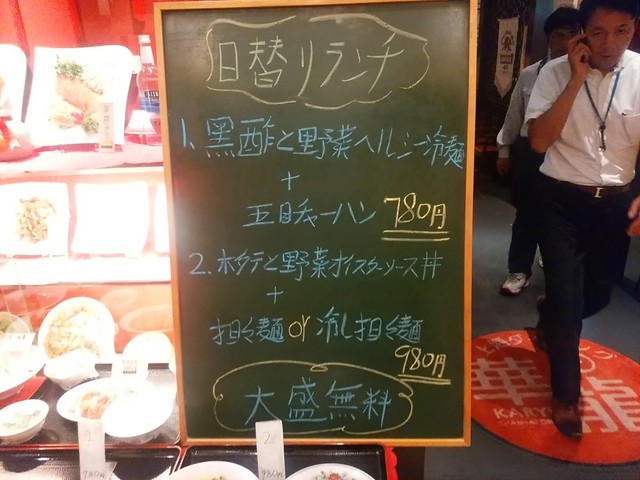 日替りランチ
1. 黒酢と野菜ヘルシー冷麺
+
五目チャーハン 780円
2. ホタテと野菜オイスターソース丼
+
担々麺 or 冷し担々麺
980円
大盛無料
華龍
KARYU
1
980円
2
980円